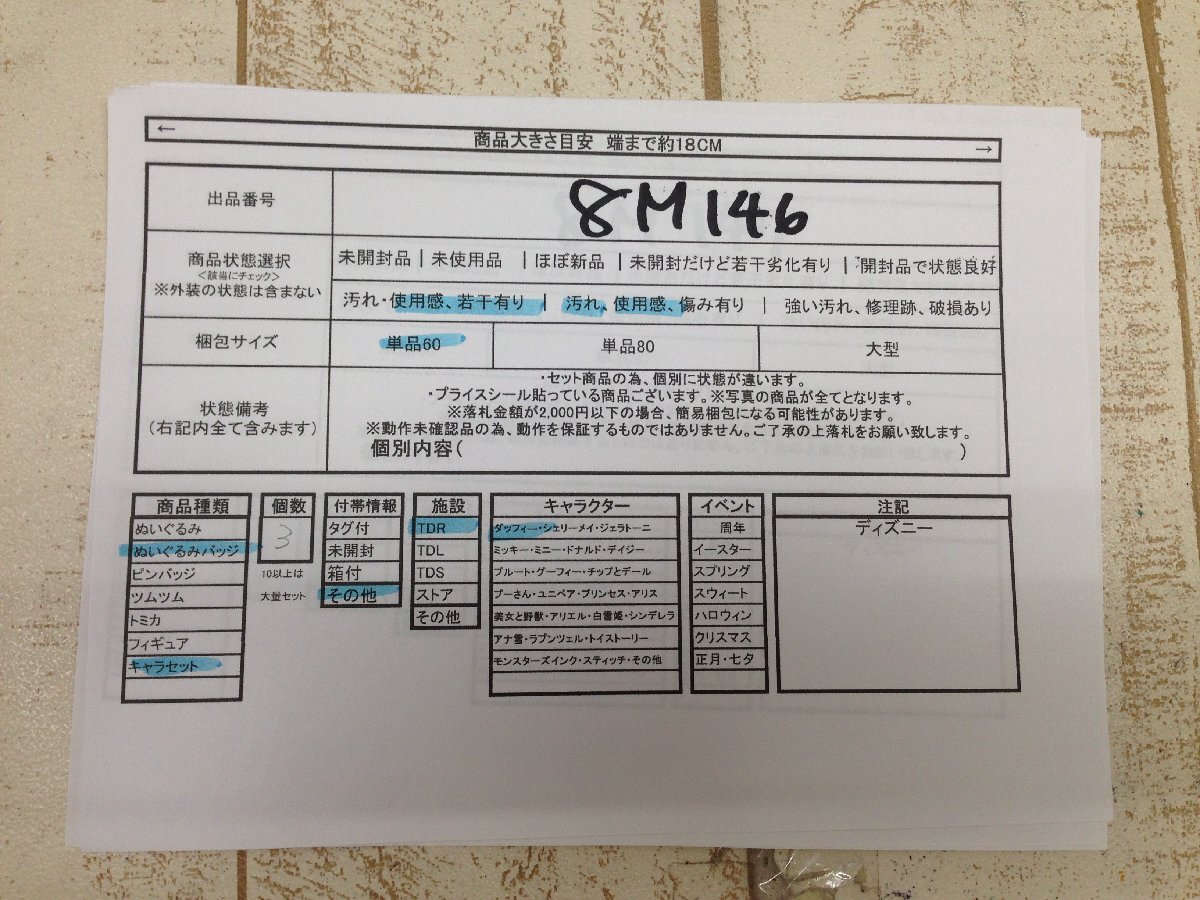 ← 商品大きさ目安 端まで約18CM →
出品番号 8M146
商品状態選択
<該当にチェック>
※外装の状態は含まない
未開封品 | 未使用品 | ほぼ新品 | 未開封だけど若干劣化有り | 開封品で状態良好
汚れ・使用感、若干有り | 汚れ、使用感、傷み有り | 強い汚れ、修理跡、破損あり
梱包サイズ 単品60 単品80 大型
状態備考
(右記内全て含みます)
・セット商品の為、個別に状態が違います。
・プライスシール貼っている商品ございます。※写真の商品が全てとなります。
※落札金額が2,000円以下の場合、簡易梱包になる可能性があります。
※動作未確認品の為、動作を保証するものではありません。ご了承の上落札をお願い致します。
個別内容( )
商品種類
ぬいぐるみ
ぬいぐるみバッジ
ピンバッジ
ツムツム
トミカ
フィギュア
キャラセット
個数
3
10以上は
大量セット
付帯情報
タグ付
未開封
箱付
その他
施設
TDR
TDL
TDS
ストア
その他
キャラクター
ダッフィー・シェリーメイ・ジェラトーニ
ミッキー・ミニー・ドナルド・デイジー
プルート・グーフィー・チップとデール
プーさん・ユニベア・プリンセス・アリス
美女と野獣・アリエル・白雪姫・シンデレラ
アナ雪・ラプンツェル・トイストーリー
モンスターズインク・スティッチ・その他
イベント
周年
イースター
スプリング
スウィート
ハロウィン
クリスマス
正月・七夕
注記
ディズニー